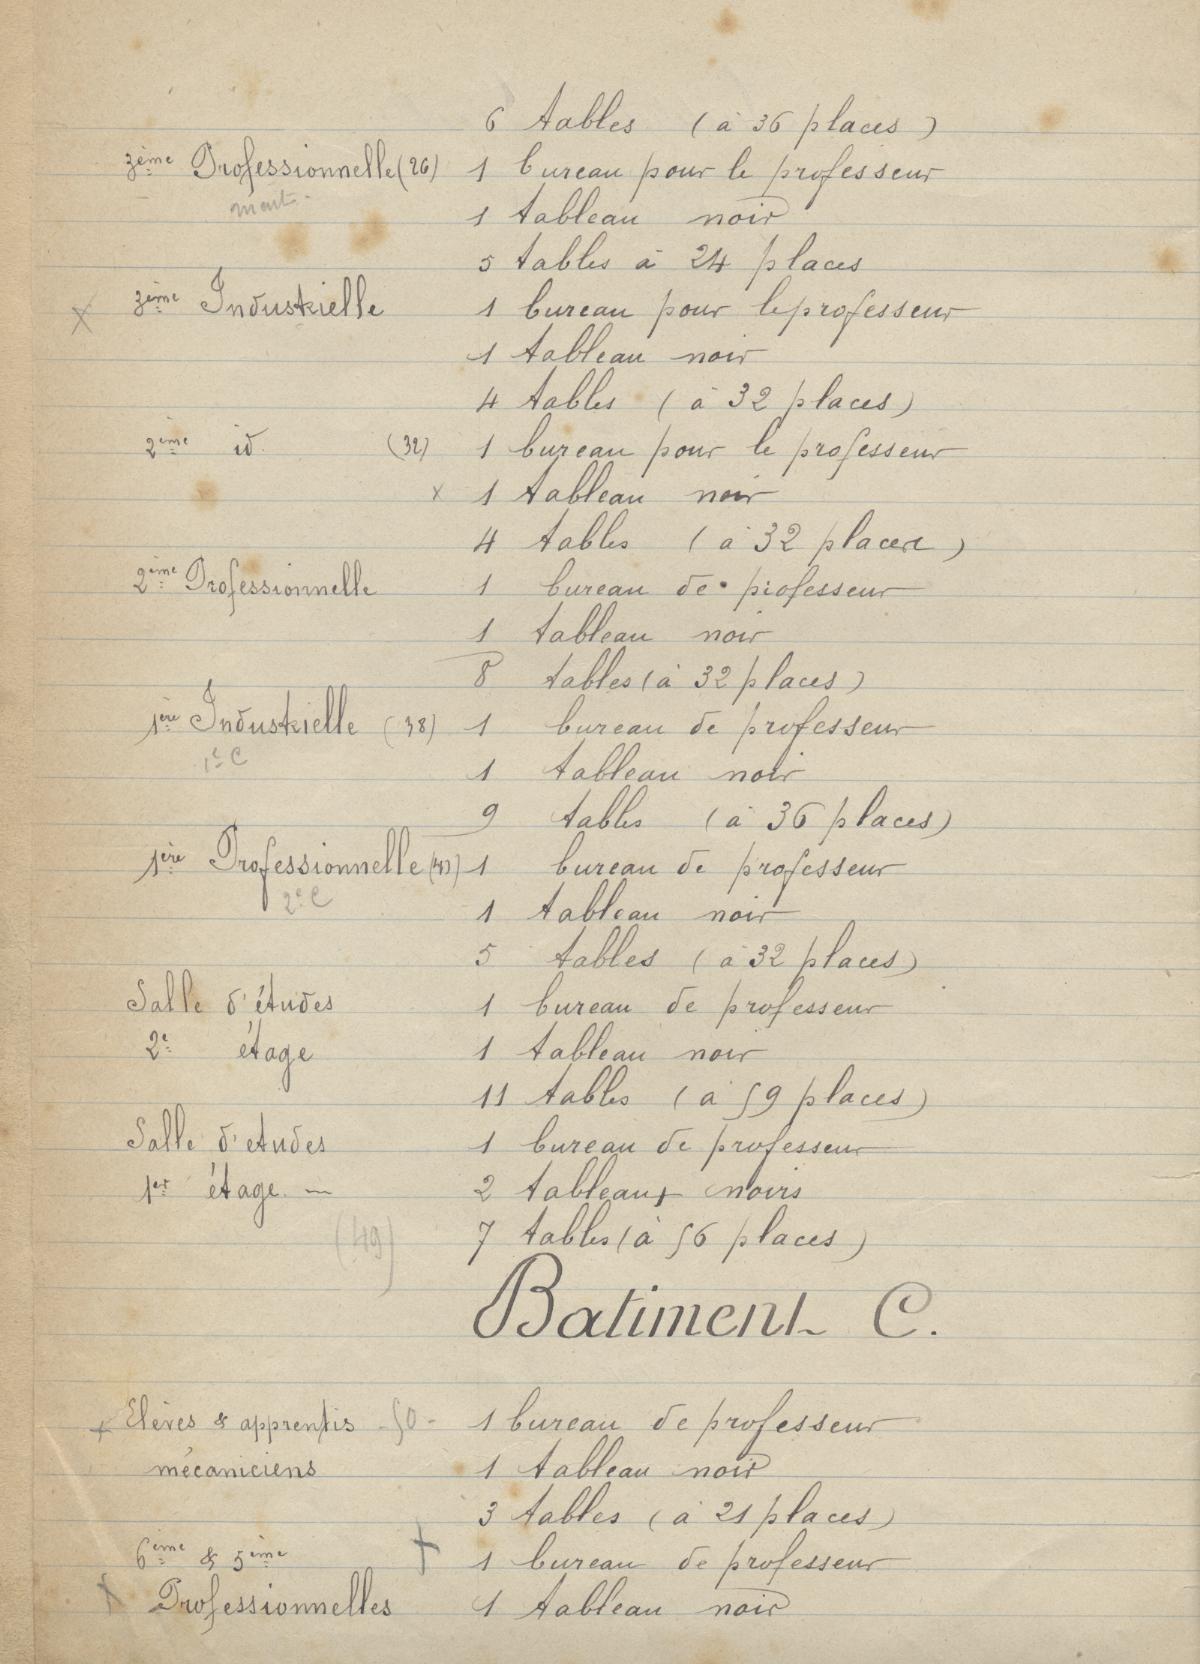 6 tables (à 36 places)
3ème Professionnelle (26) 1 bureau pour le professeur
1 tableau noir
5 tables à 24 places
x 3ème Industrielle 1 bureau pour le professeur
1 tableau noir
4 tables (à 32 places)
2ème id. (32) 1 bureau pour le professeur
x 1 tableau noir
4 tables (à 32 places)
2ème Professionnelle 1 bureau de professeur
1 tableau noir
8 tables (à 32 places)
1ère Industrielle (38) 1 bureau de professeur
1e C
1 tableau noir
9 tables (à 36 places)
1ère Professionnelle 1 bureau de professeur
2e C
1 tableau noir
5 tables (à 32 places)
Salle d'études 1 bureau de professeur
2e étage 1 tableau noir
11 tables (à 59 places)
Salle d'etudes 1 bureau de professeur
1er étage — 2 tableaux noirs
(49) 7 tables (à 56 places)
Batiment C.
x Elèves & apprentis - 50 - 1 bureau de professeur
mécaniciens 1 tableau noir
3 tables (à 21 places)
6ème & 5ème x 1 bureau de professeur
x Professionnelles 1 tableau noir